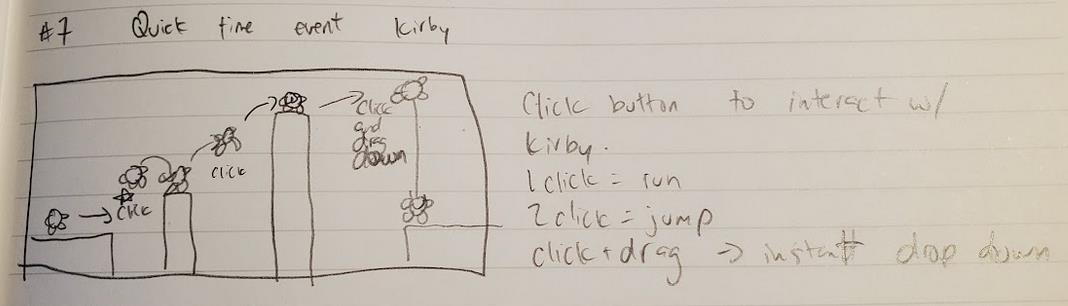 #7 Quick time event Kirby
Click
click
Click
and
drag
down
Click button to interact w/
Kirby.
1 click = run
2 click = jump
click + drag → instant drop down